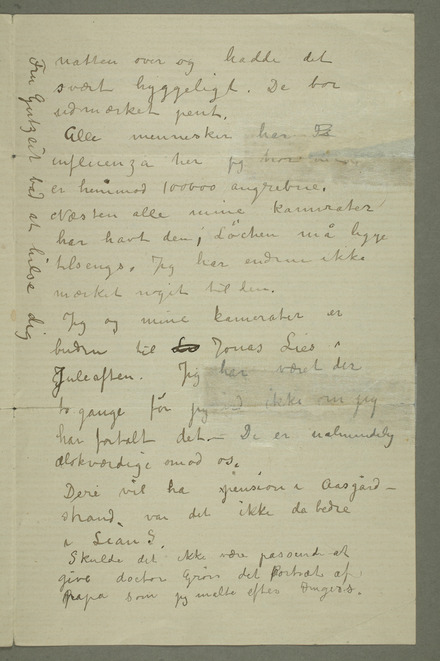 natten over og hadde det
svært hyggeligt. De bor
udmærket pent.
Alle mennesker har
influenza her jeg tror
er henimod 100000 angrebne.
Næsten alle mine kamerater
har havt den; Løchen må ligge
tilsengs. Jeg har endnu ikke
mærket noget til den.
Jeg og mine kamerater er
buden til Jonas Lies i
Juleaften. Jeg har været der
to gange før jeg ikke om jeg
har fortalt det. De er ualmindelig
elskværdige imod os.
Dere vil ha pension i Aasgård-
strand, var det ikke da bedre
i
Skulde det ikke være passende at
give doctor det Portræt af
Papa som jeg malte efter
Fru bad at hilse dig